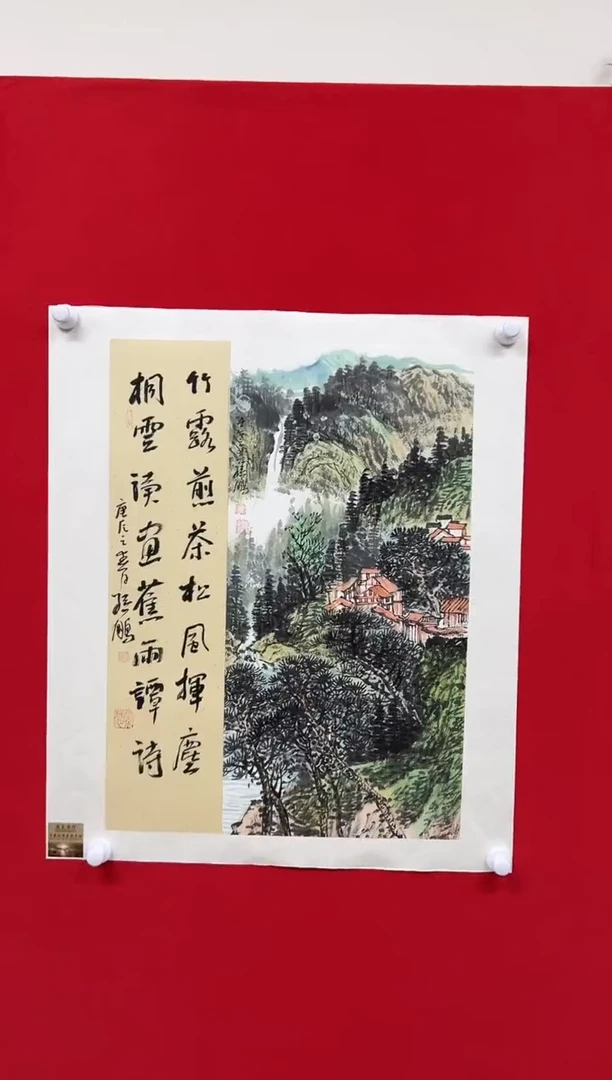 竹露煎茶松風揮塵
桐雲讀畫蕉雨譚詩
庚辰之
孫鵬